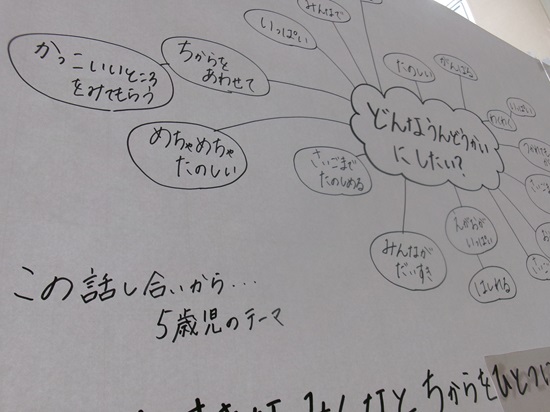 みんなで
いっぱい
ちからを
あわせて
かっこいいところ
をみてもらう
めちゃめちゃ
たのしい
たのしい
がんばる
わくわく
いっぱい
どんなうんどうかい
にしたい?
さいごまで
たのしめる
みんなが
だいすき
えがおが
いっぱい
はしれる
この話し合いから...
5歳児のテーマ
ちからをひとつに